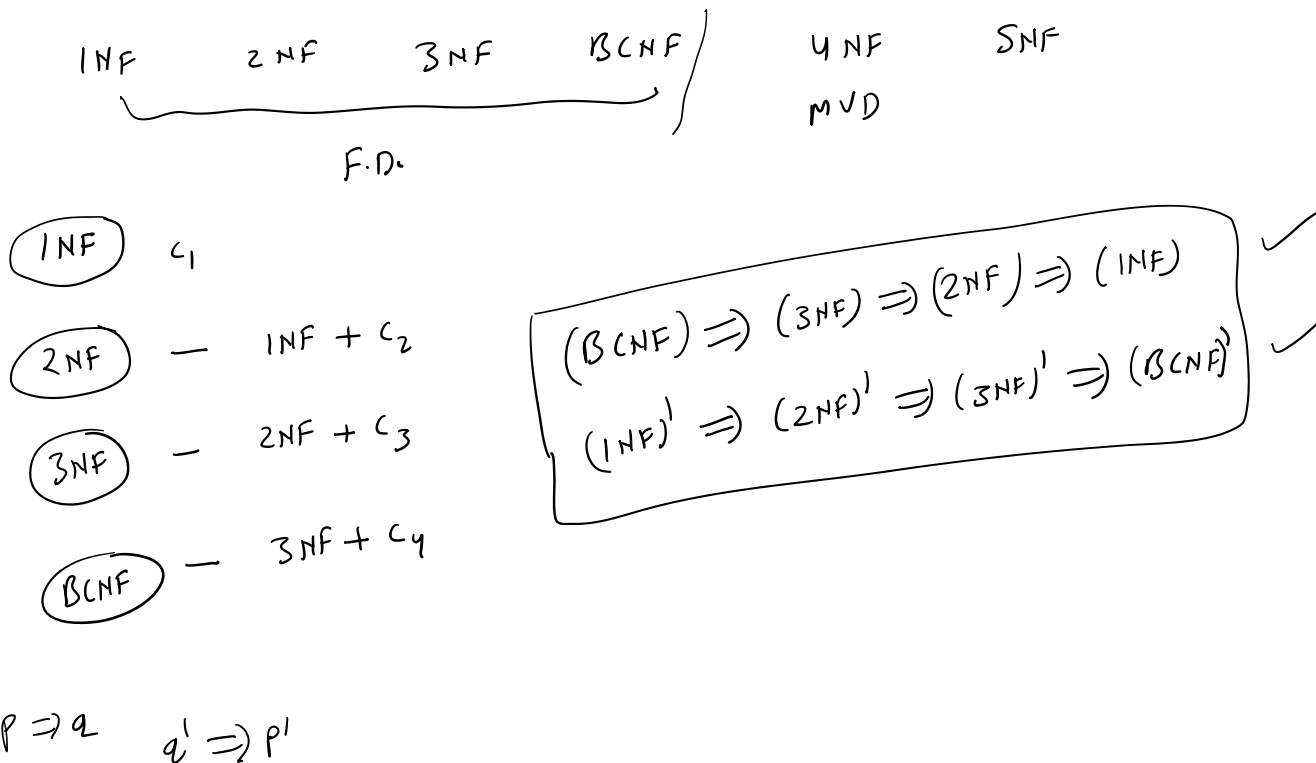 1NF 2NF 3NF BCNF / 4NF 5NF
MVD
F.D.
1NF C1
2NF — 1NF + C2
3NF — 2NF + C3
BCNF — 3NF + C4
(BCNF) ⇒ (3NF) ⇒ (2NF) ⇒ (1NF) ✓
(1NF)' ⇒ (2NF)' ⇒ (3NF)' ⇒ (BCNF)' ✓
P ⇒ q q' ⇒ P'